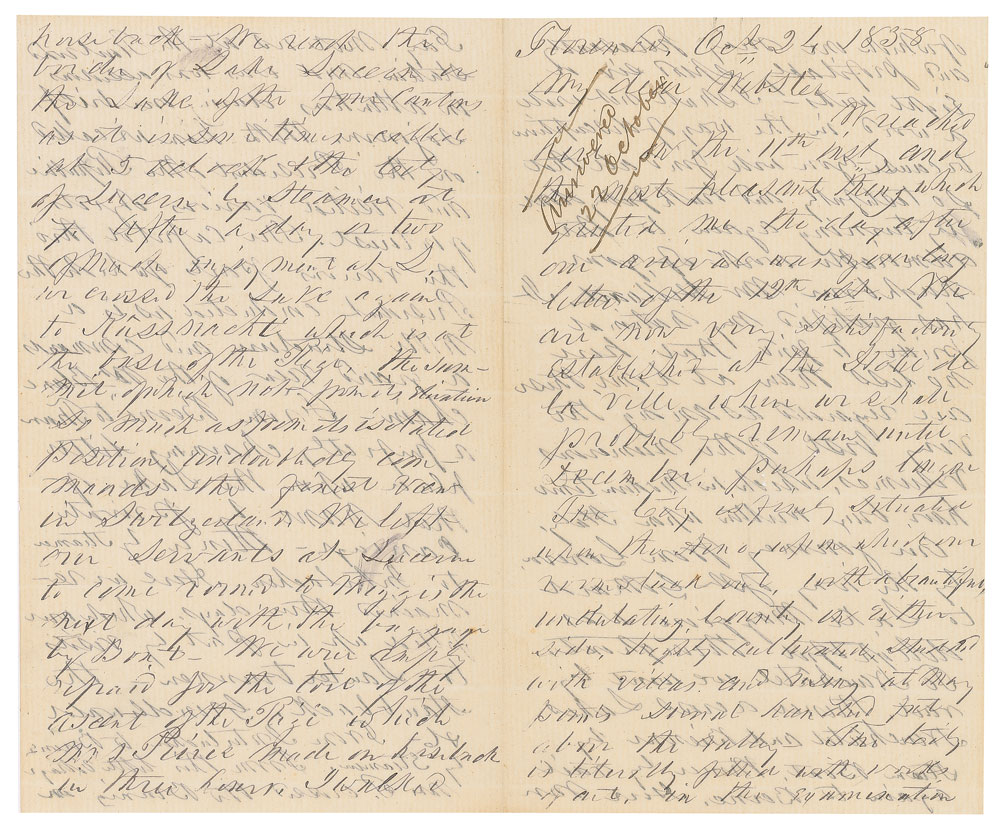 Florence, Oct. 26 1858
My dear Webster
Answered
22 October
We reached
here on the 11th inst, and
the most pleasant thing which
greeted me the day after
our arrival was your long
letter of the 12th ult. We
are now very satisfactorily
established at the Hotel de
la Ville where we shall
probably remain until
December, perhaps longer
The City is finely situated
upon the Arno, upon which our
rooms look out, with a beautiful,
undulating Country on either
side, highly cultivated, studded
with villas and rising at many
points several hundred feet
above the valley. The City
is literally filled with works
of art, in the examination
horseback - We reach the
border of Lake Lucerne or
the Lake of the four Cantons
as it is sometimes called
at 5 oclock & the City
of Lucerne by Steamer at
7. After a day or two
of much enjoyment at L.
we crossed the Lake again
to Küssnacht which is at
the base of the Rigi. The sum-
mit of which not from its elevation
so much as from its isolated
position, undoubtedly com-
mands the finest view
in Switzerland. We left
our servants at Lucerne
to come round to Weggis the
next day with the baggage
by Boat - We were amply
repaid for the toil of the
ascent of the Rigi which
Mrs Pierce made on horseback
in three hours. I walked